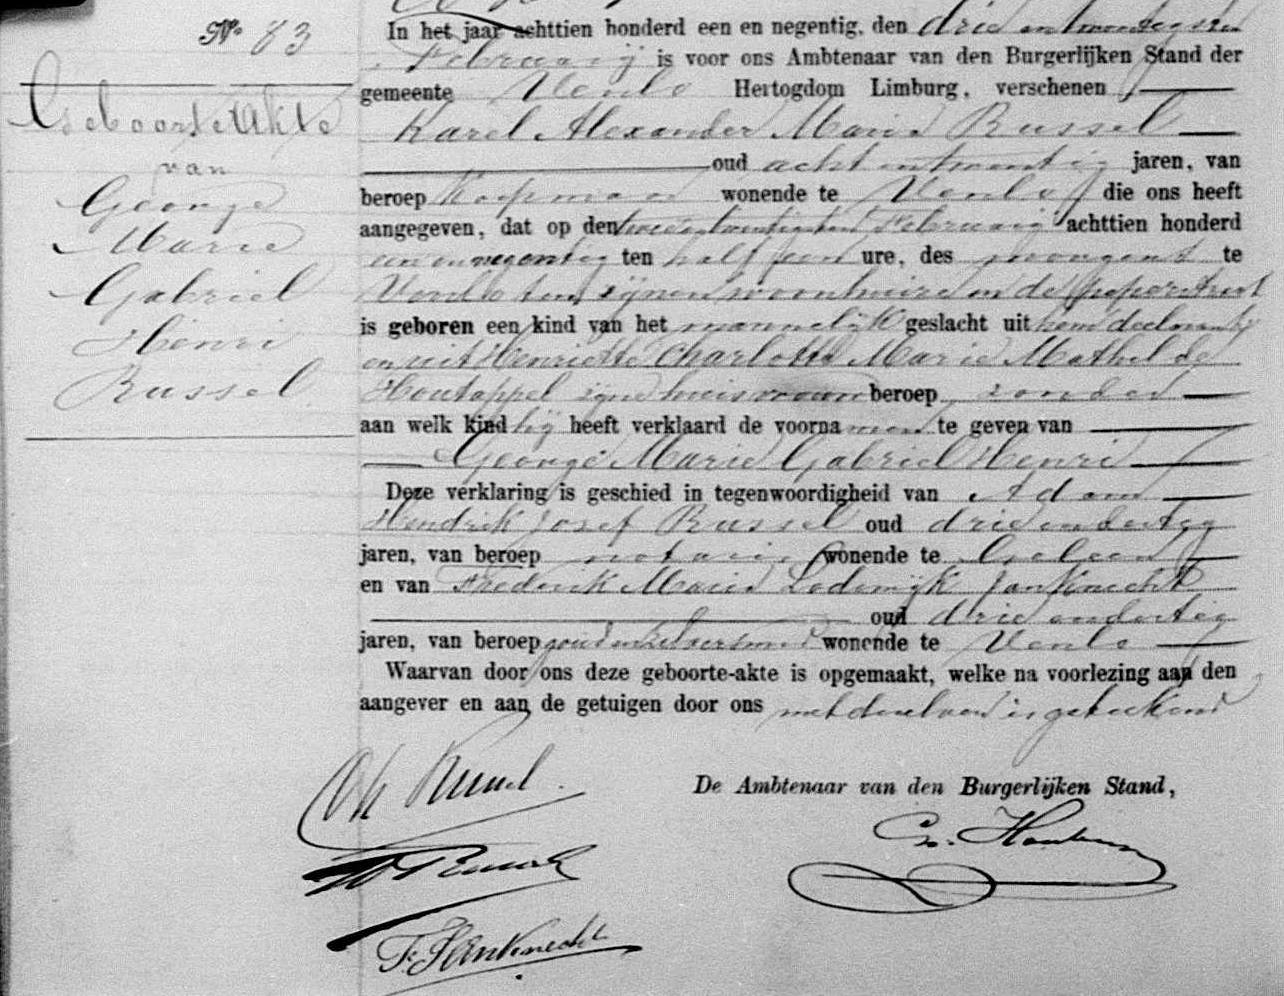 Nº 83
Geboorte Akte
van
George
Marie
Gabriel
Henri
Russel
In het jaar achttien honderd een en negentig, den drie en twintigsten
Februarij is voor ons Ambtenaar van den Burgerlijken Stand der
gemeente Venlo Hertogdom Limburg, verschenen
Karel Alexander Marie Russel
oud acht en twintig jaren, van
beroep Koopman wonende te Venlo die ons heeft
aangegeven, dat op den Februarij achttien honderd
een en negentig ten half een ure, des morgens te
Venlo ten zijnen woonhuize in de Peperstraat
is geboren een kind van het mannelijk geslacht uit hem declarant
en uit Henriette Charlotte Marie Mathilde
Houtappel zijne huisvrouw beroep zonder
aan welk kind hij heeft verklaard de voornamen te geven van
George Marie Gabriel Henri
Deze verklaring is geschied in tegenwoordigheid van Adam
Hendrik Josef Russel oud drie en dertig
jaren, van beroep notaris wonende te Geleen
en van Frederik Marie Lodewijk Janknecht
oud drie en dertig
jaren, van beroep goud en zilversmid wonende te Venlo
Waarvan door ons deze geboorte-akte is opgemaakt, welke na voorlezing aan den
aangever en aan de getuigen door ons met denzelven is geteekend
De Ambtenaar van den Burgerlijken Stand,
Russel
F. Janknecht